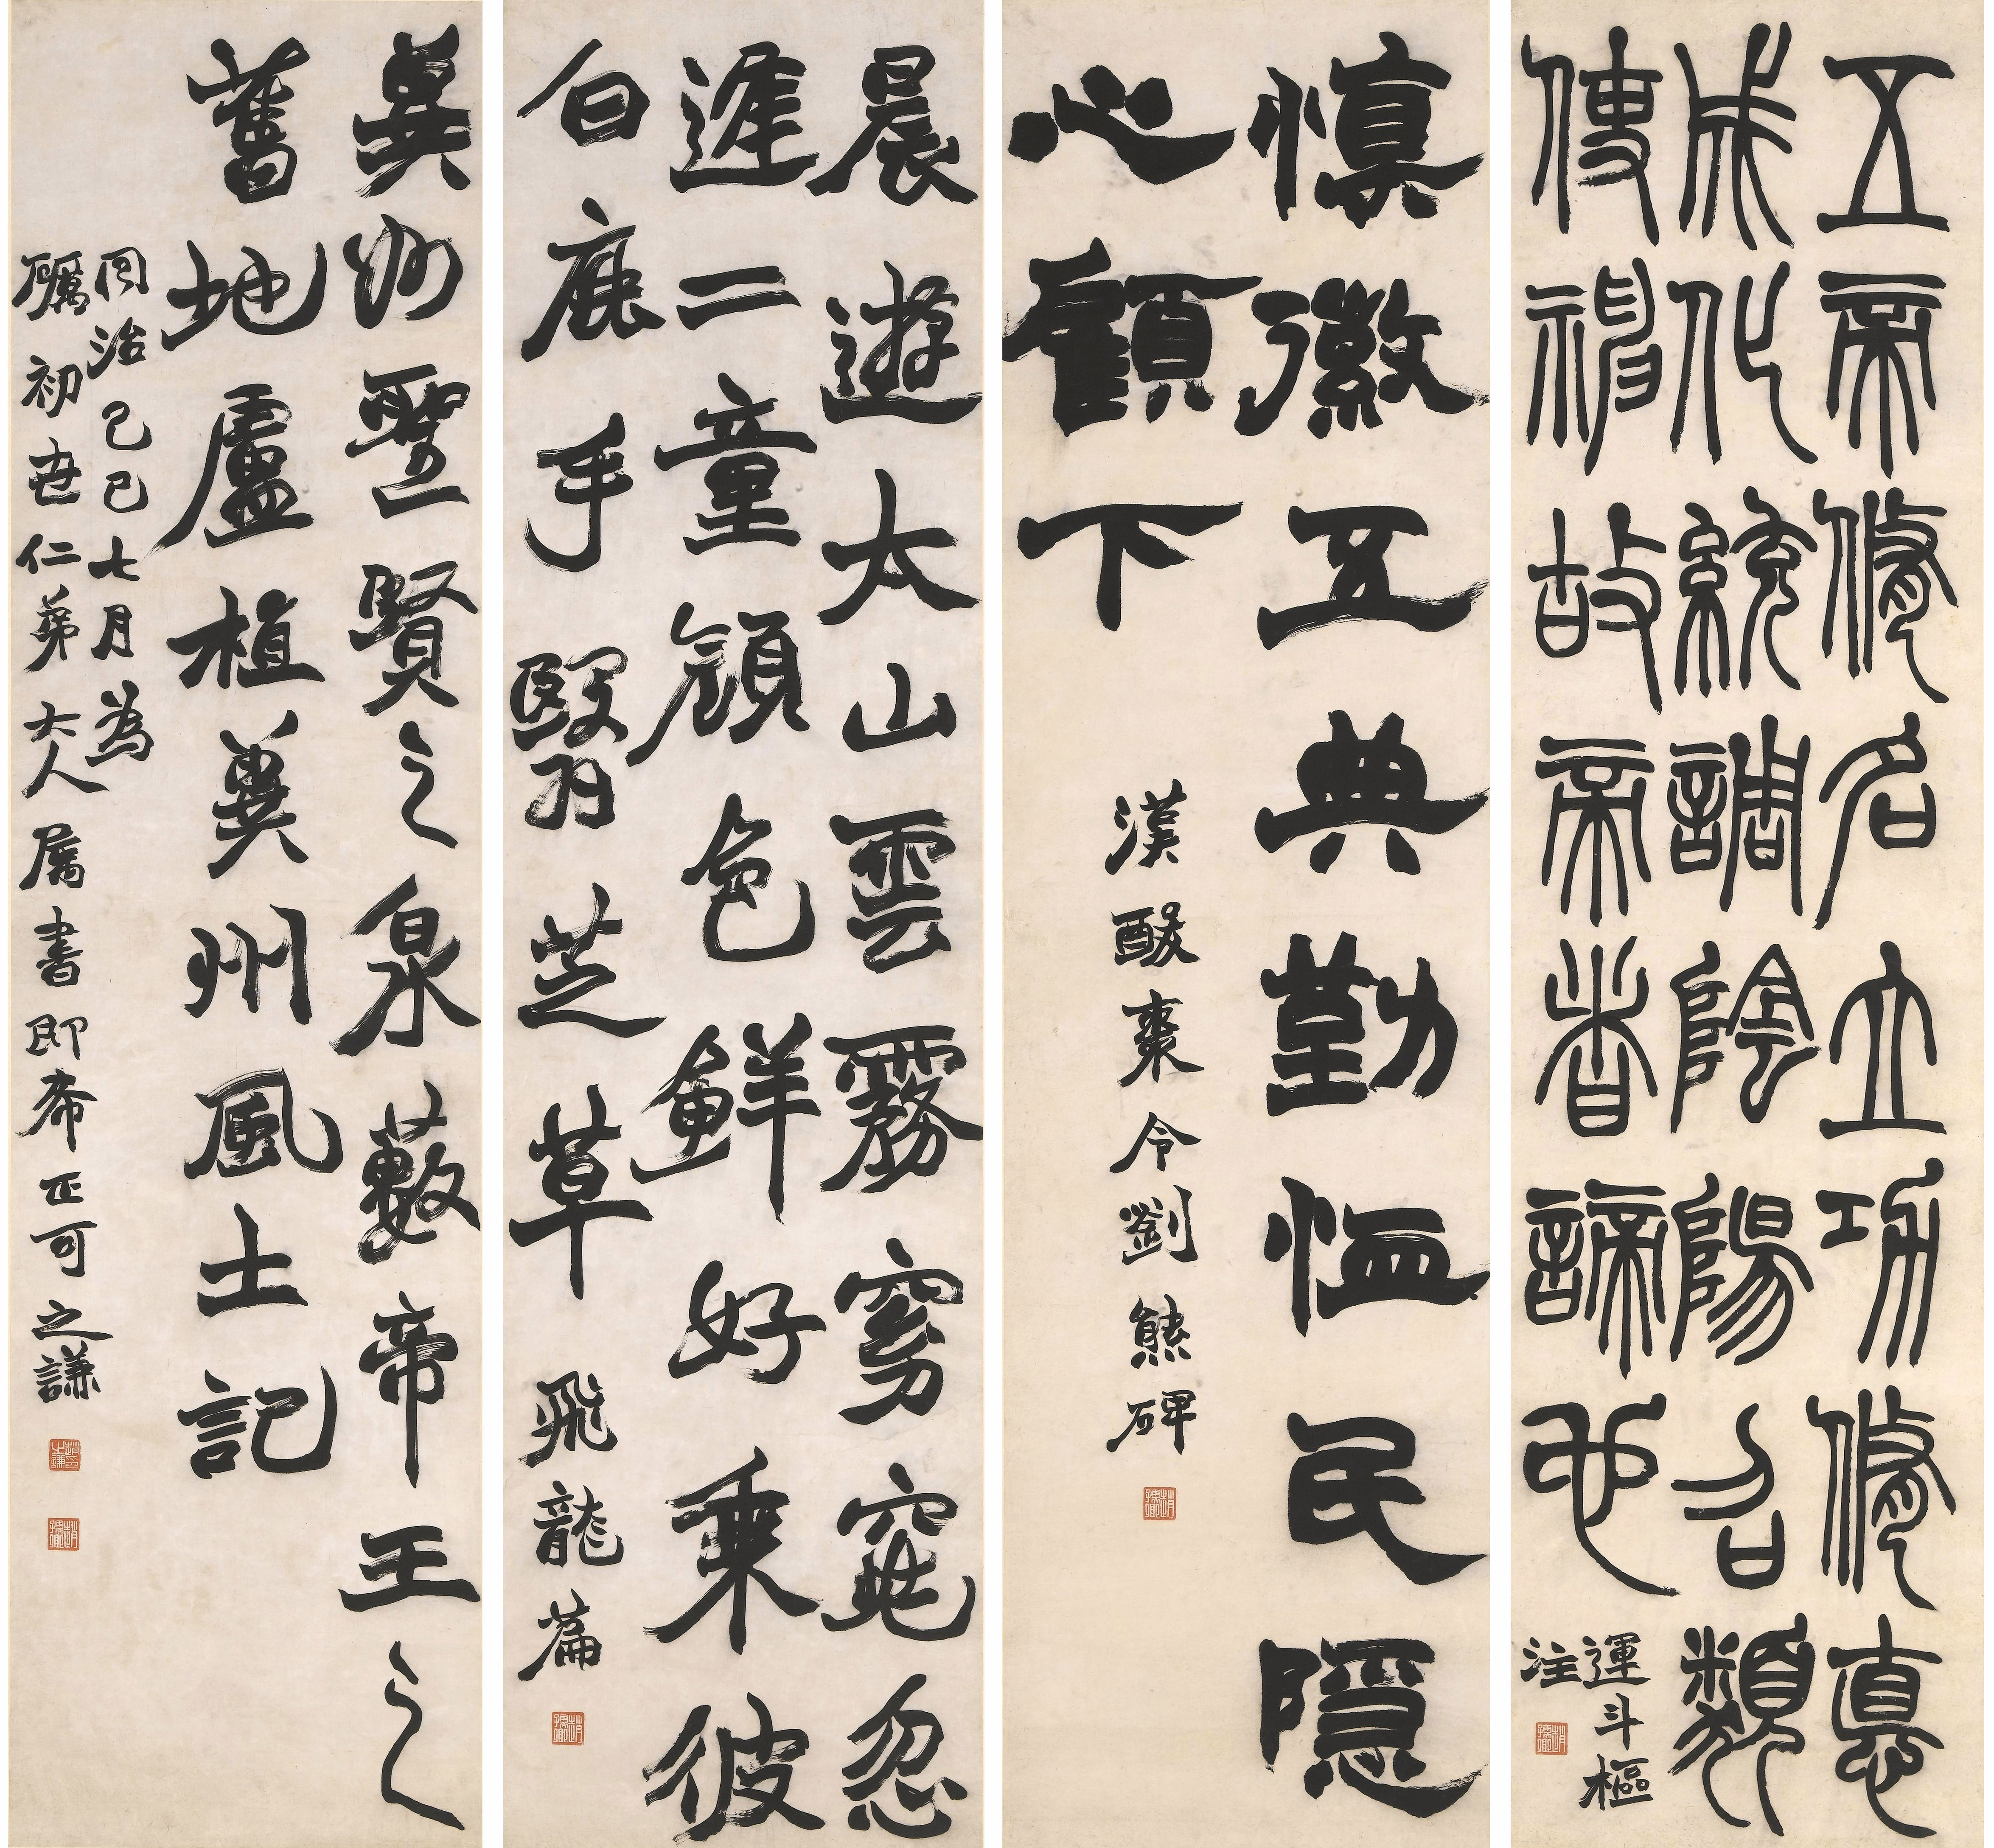 五帝修名立功修悳
成化統調陰陽召類
使神故帝者諦也
運斗樞
注
慎徽五典勤恤民隱
心顧下
漢酸棗令劉熊碑
晨遊太山雲霧窈窕忽
逢二童顏色鮮好乘彼
白鹿手翳芝草 飛龍篇
冀州聖賢之泉藪帝王之
舊地盧植冀州風土記
同治己巳七月為
礪初世仁弟大人屬書即希正可之謙